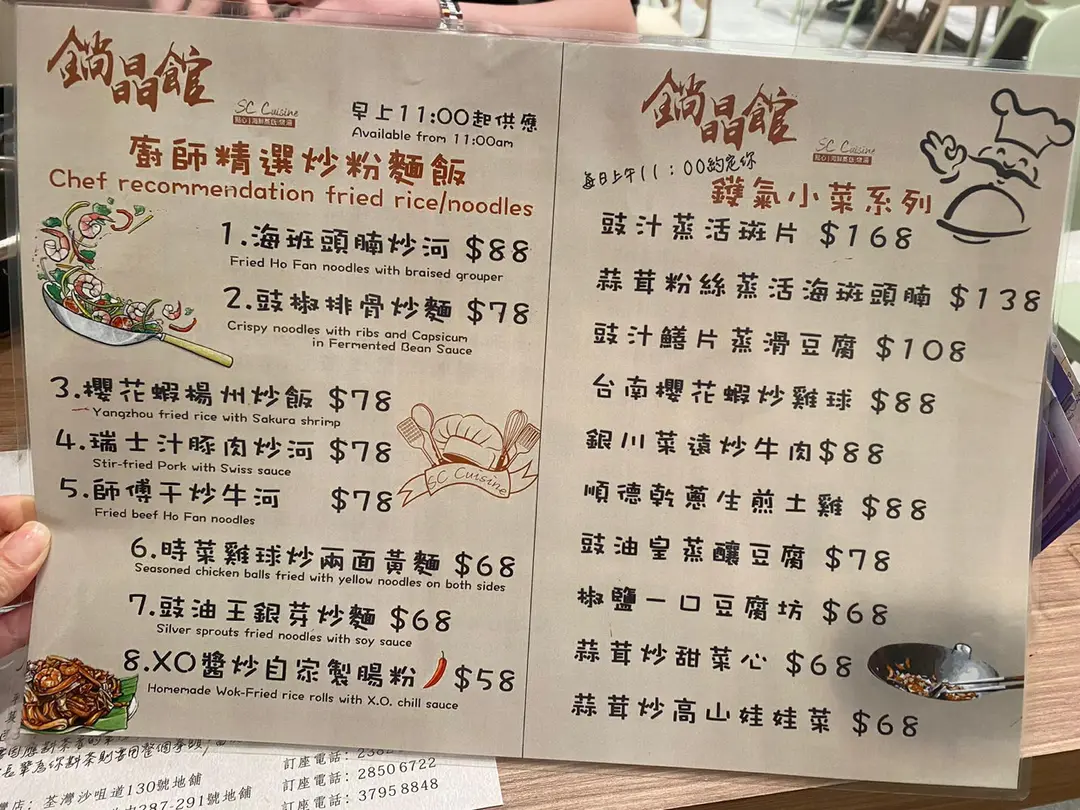 鑴晶館
SC Cuisine
早上11:00起供應
Available from 11:00am
廚師精選炒粉麵飯
Chef recommendation fried rice/noodles
1.海班頭腩炒河 $88
Fried Ho Fan noodles with braised grouper
2.豉椒排骨炒麵 $78
Crispy noodles with ribs and Capsicum
in Fermented Bean Sauce
3.櫻花蝦揚州炒飯 $78
Yangzhou fried rice with Sakura shrimp
4.瑞士汁豚肉炒河 $78
Stir-fried Pork with Swiss sauce
5.師傅干炒牛河 $78
Fried beef Ho Fan noodles
SC Cuisine
6.時菜雞球炒兩面黃麵 $68
Seasoned chicken balls fried with yellow noodles on both sides
7.豉油王銀芽炒麵 $68
Silver sprouts fried noodles with soy sauce
8.XO醬炒自家製腸粉 $58
Homemade Wok-Fried rice rolls with X.O. chill sauce
晶館
SC Cuisine
每日上午11:00約定你
鑊氣小菜系列
豉汁蒸活斑片 $168
蒜茸粉絲蒸活海斑頭腩 $138
豉汁鱔片蒸滑豆腐 $108
台南櫻花蝦炒雞球 $88
銀川菜遠炒牛肉$88
順德乾蔥生煎土雞 $88
豉油皇蒸釀豆腐 $78
椒鹽一口豆腐坊 $68
蒜茸炒甜菜心 $68
蒜茸炒高山娃娃菜 $68
店：荃灣沙咀道130號地舖
287-291號地舖
訂座電話：
訂座電話：2850 6722
訂座電話：3795 8848